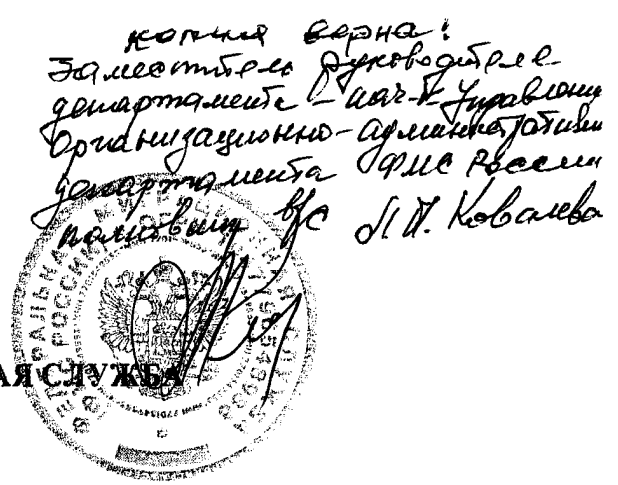 копия верна:
Заместитель руководителя
департамента – нач-к Управления
Организационно-административн
департамента ФМС России
в/с Л.И. Ковалева
АЯ СЛУЖБА